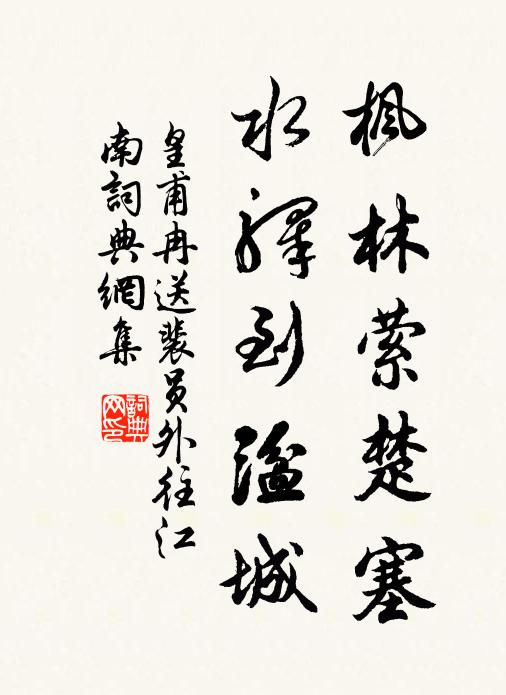 枫林萦楚塞
水驿到湓城
皇甫冉送裴员外往江
南詞典網集
詞典网印